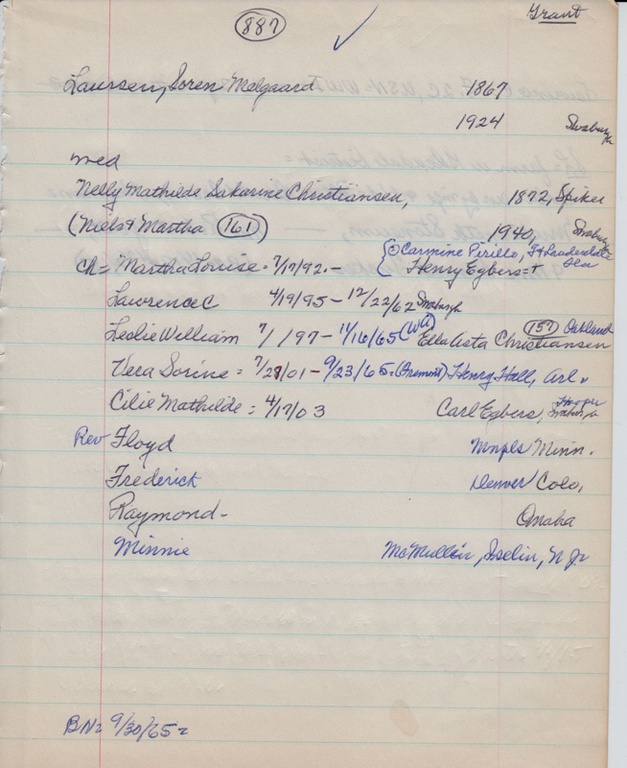 Grant
887
Laursen, Soren Melgaard 1867
1924
med
Nelly Mathilde Sakarine Christiansen, 1872, Spiker
(Niels & Martha 161) 1940,
Ch= Martha Louise - 7/17/92 - Carmine Pirillo, Ft Lauderdale Fla
Henry Egbers = +
Lawrence C 4/19/95 - 12/22/62
Leslie William 7/1/97 - 11/16/65 (WA) Ella Asta Christiansen 157 Oakland
Vera Sorine = 7/27/01 - 9/23/65. (Fremont) Henry Hall, Arl
Cilie Mathilde = 4/17/03 Carl Egbers, Hooper
Rev Floyd Mnpls Minn.
Frederick Denver Colo,
Raymond - Omaha
Minnie McMullin, Iselin, N J
BN= 9/30/65 =